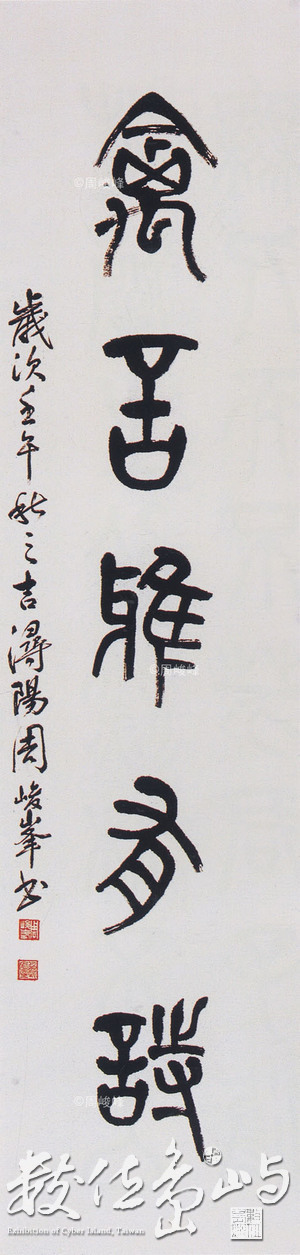 禽言雅有詩
歲次壬午秋之吉潯陽周峻峯書
©周峻峰
©周峻峰
©周峻峰
數位島嶼
Exhibition of Cyber Island, Taiwan